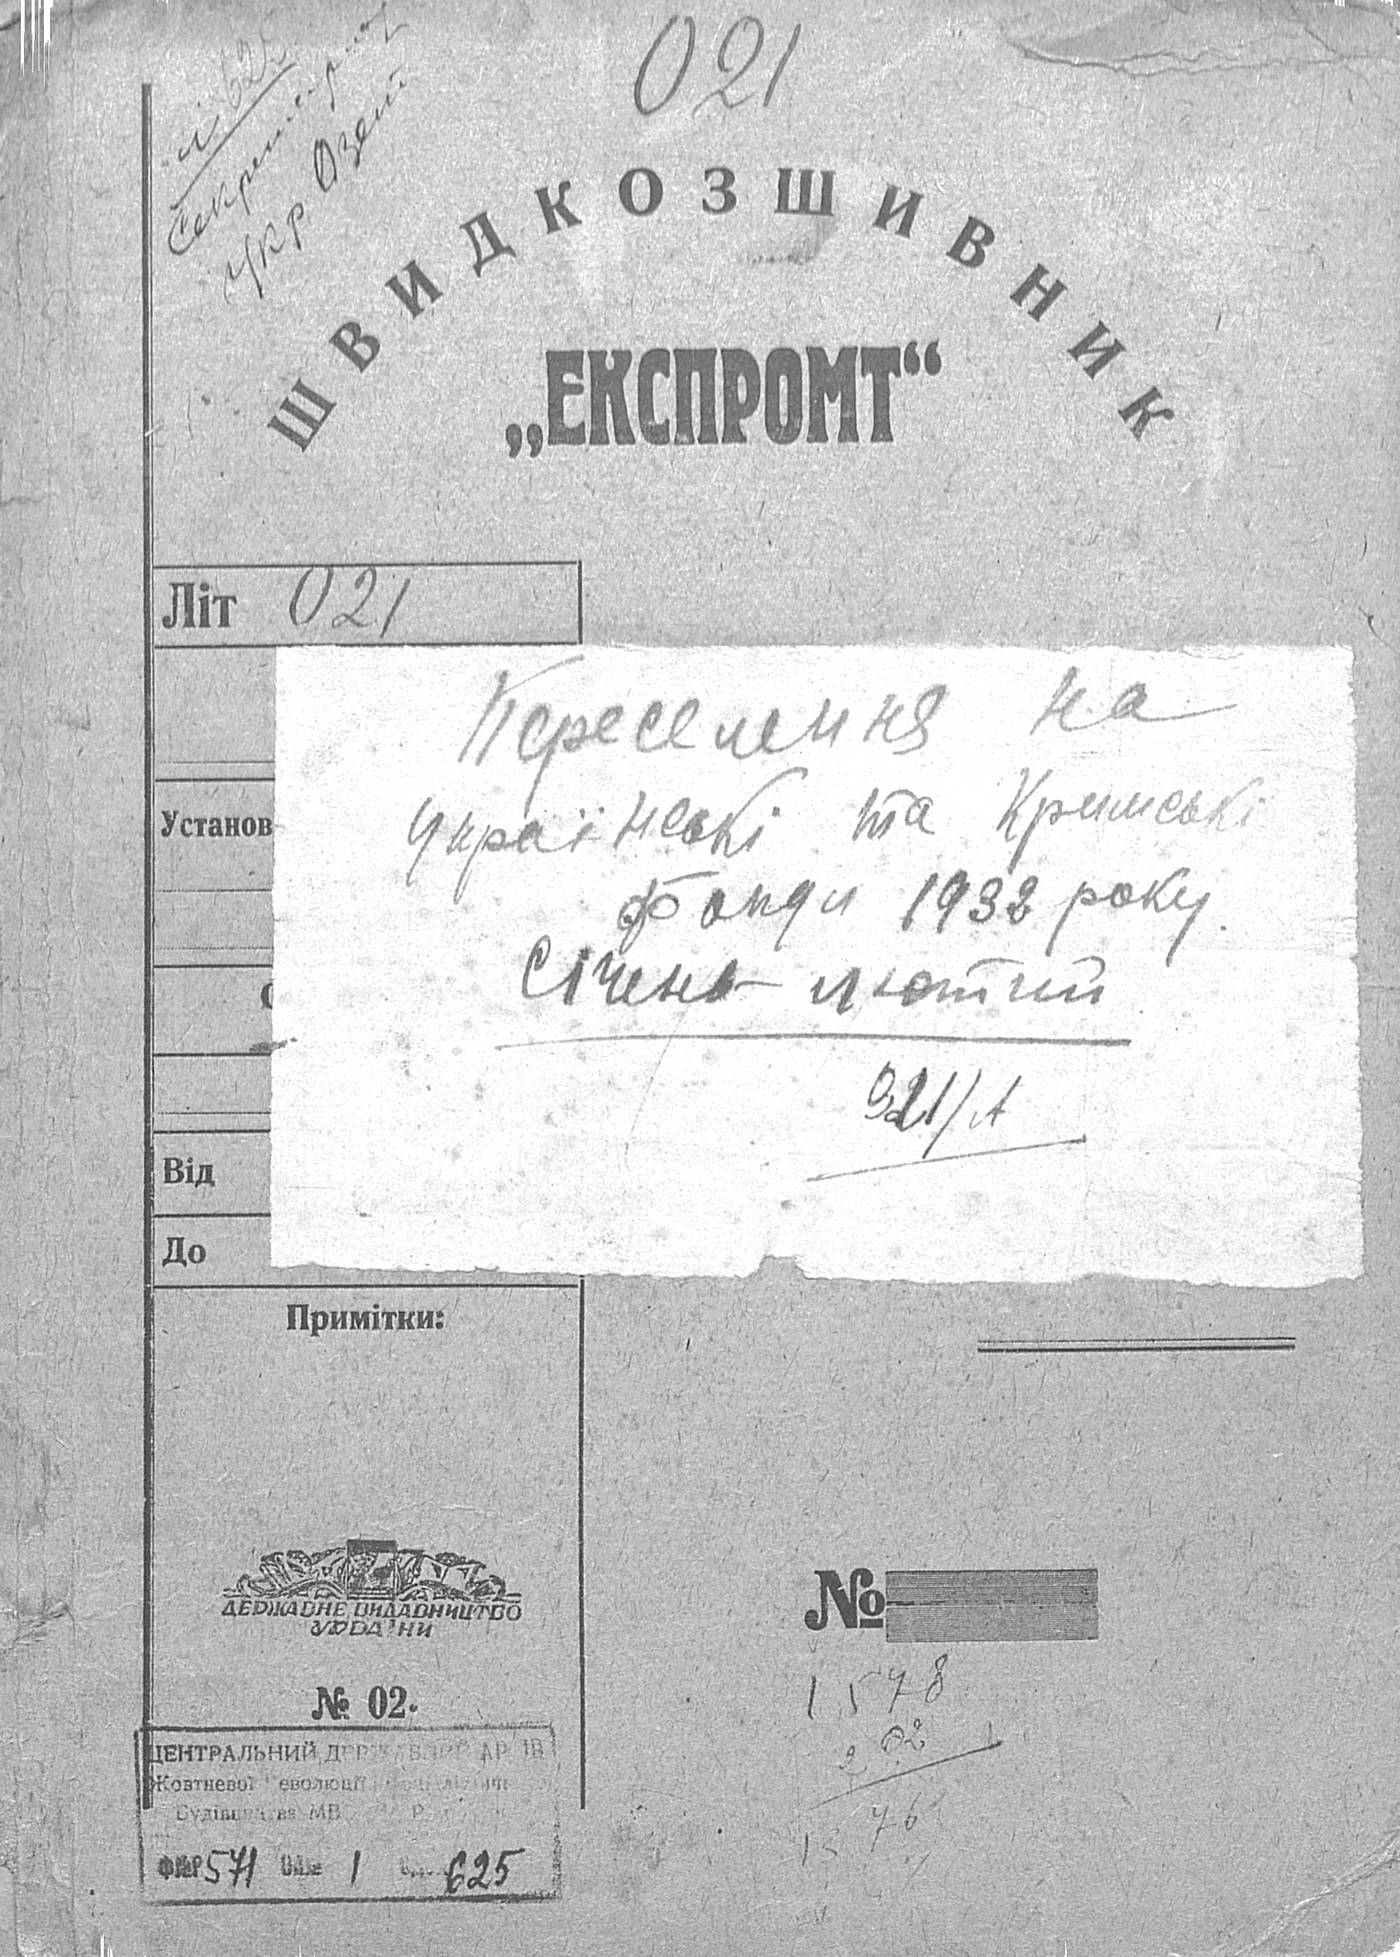 021
№ 625
Секретаріат
Укр. Озет
ШВИДКОЗШИВНИК
„ЕКСПРОМТ“
Літ 021
Переселення на
Українські та Кримські
фонди 1932 року.
Січень - лютий
921/А
Установ
Від
До
Примітки:
ДЕРЖАВНЕ ВИДАВНИЦТВО
УКРАЇНИ
№ 02.
№
1578
202
1376
ЦЕНТРАЛЬНИЙ ДЕРЖАВНИЙ АРХІВ
Жовтневої Революції
Будівництва МВ
Ф№Р 571 Оп. № 1 625